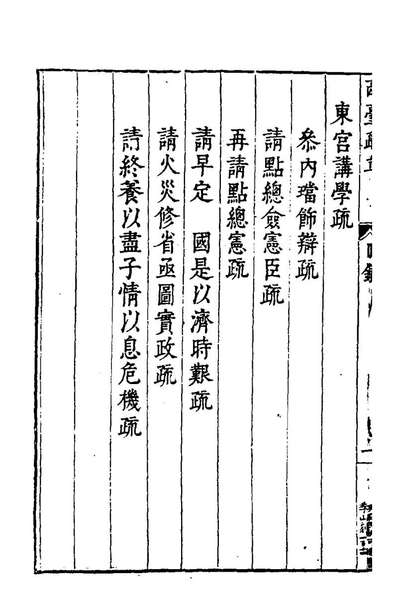 東宮講學疏
叅内璫飾辯疏
請點總僉憲臣疏
再請點總憲疏
請早定　國是以濟時艱疏
請火災修省亟圖實政疏
請終養以盡子情以息危機疏